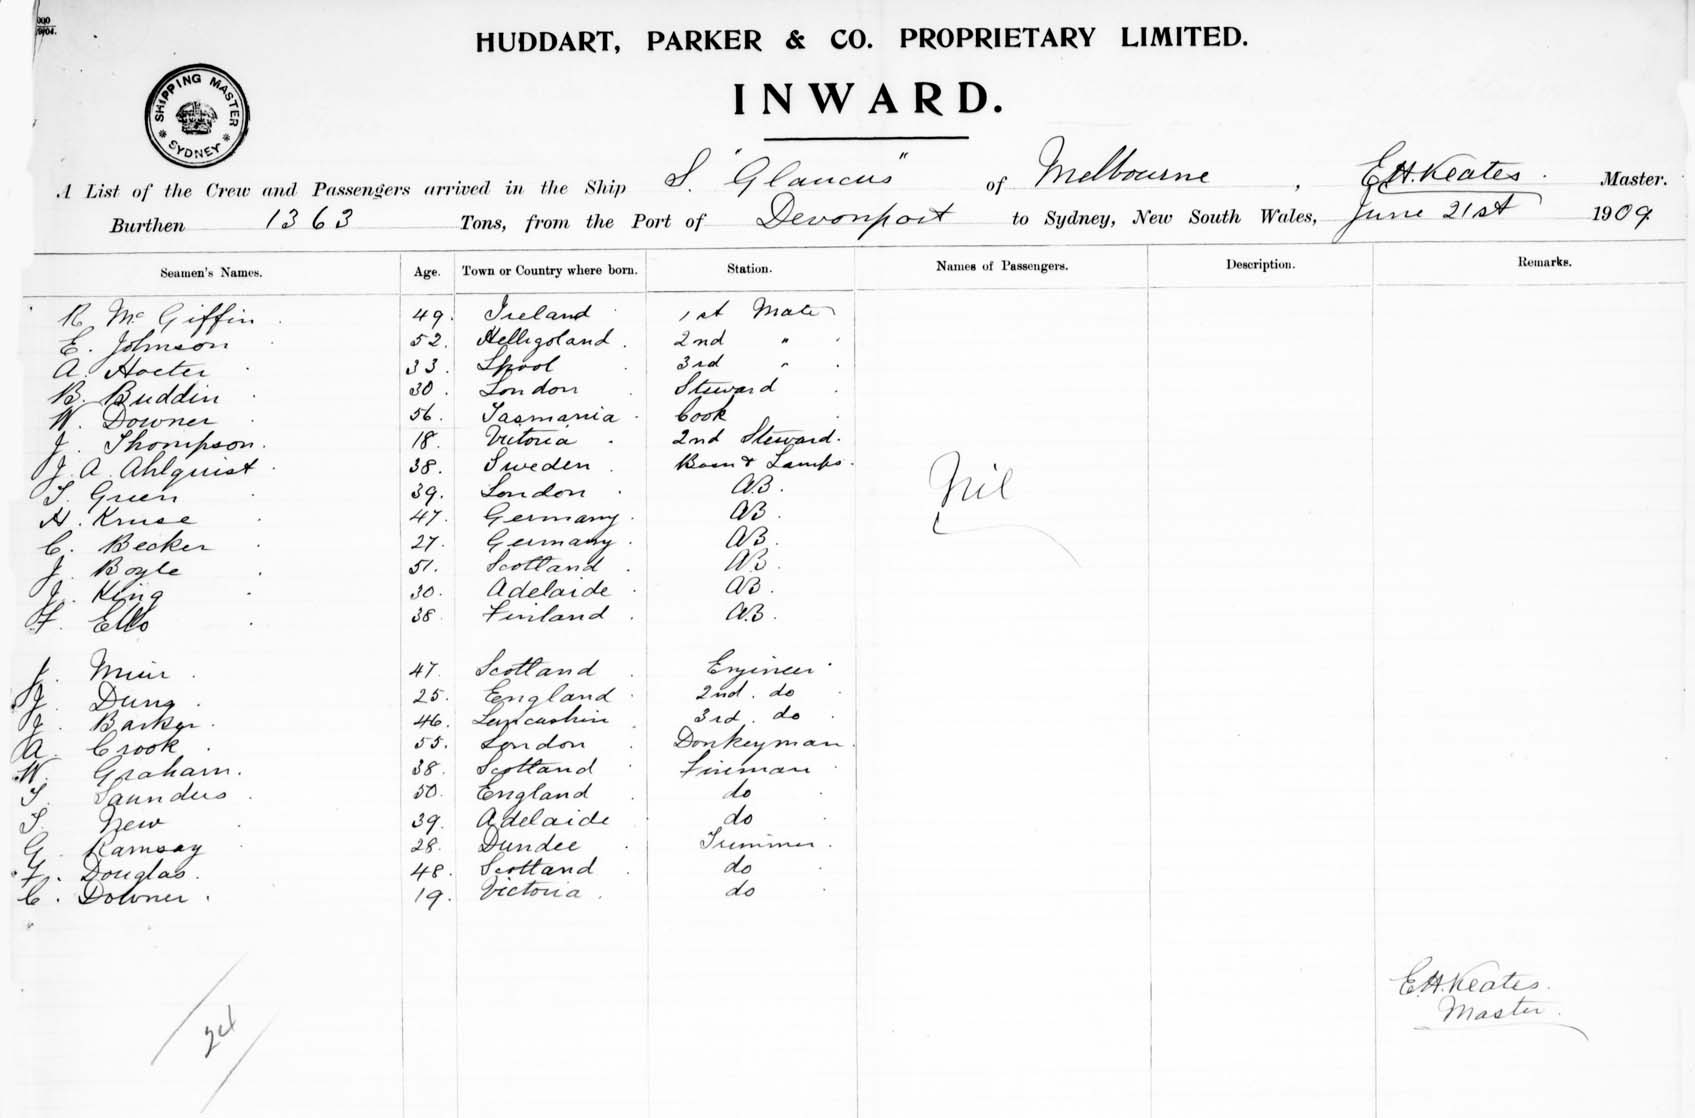 HUDDART, PARKER & CO. PROPRIETARY LIMITED.
INWARD.
SHIPPING MASTER
SYDNEY
A List of the Crew and Passengers arrived in the Ship S. "Glaucus" of Melbourne, E.H. Keates. Master.
Burthen 1363 Tons, from the Port of Devonport to Sydney, New South Wales, June 21st 1909
Seamen's Names. Age. Town or Country where born. Station. Names of Passengers. Description. Remarks.
R Mc Giffin 49. Ireland 1st Mate
E. Johnson 52. Helligoland. 2nd "
A. Hocter 33. Lpool 3rd "
B. Buddin 30. London Steward
W. Downer 56. Tasmania Cook
J. Thompson. 18. Victoria 2nd Steward.
J. A. Ahlquist 38. Sweden Bosn & Lamps.
T. Green 39. London A.B.
H. Kruse 47. Germany. AB.
C. Becker 27. Germany. AB.
J. Boyle 51. Scotland AB.
J. King 30. Adelaide AB.
F. Ello 38 Finland A.B.
Nil
J. Muir 47. Scotland Engineer
J. Dung 25. England 2nd. do
J. Barker. 46. Lancashire 3rd. do
A. Crook 55. London Donkeyman.
W. Graham. 38. Scotland Fireman
T. Saunders 50. England do
T. New 39. Adelaide do
G. Ramsay 28. Dundee Trimmer.
F. Douglas. 48. Scotland do
C. Downer. 19. Victoria. do
E.H. Keates.
Master.
24